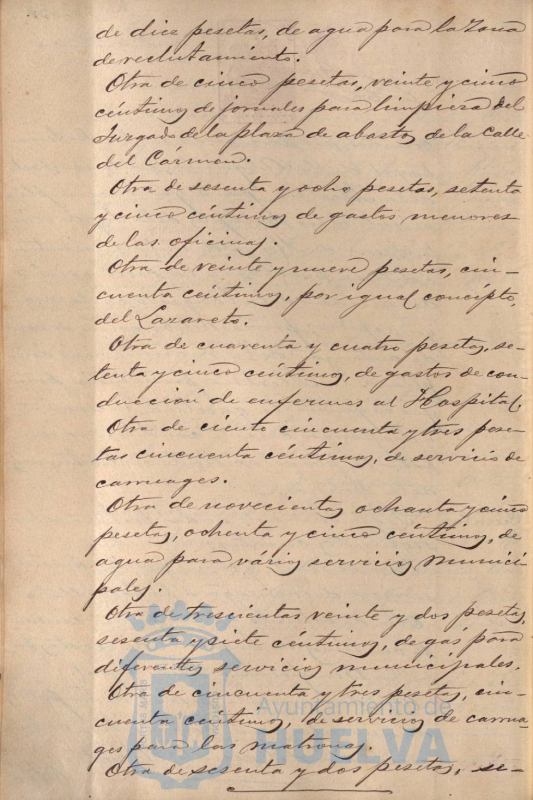 de diez pesetas, de agua para la Zona
de reclutamiento.
Otra de cinco pesetas, veinte y cinco
céntimos de jornales para limpieza del
Juzgado de la plaza de abastos de la Calle
del Cármen.
Otra de sesenta y ocho pesetas, setenta
y cinco céntimos de gastos menores
de las oficinas.
Otra de veinte y nueve pesetas, cin-
cuenta céntimos, por igual concépto,
del Lazareto.
Otra de cuarenta y cuatro pesetas, se-
tenta y cinco céntimos, de gastos de con-
ducción de enfermos al Hospital.
Otra de ciento cincuenta y tres pese-
tas cincuenta céntimos, de servicio de
carruages.
Otra de novecientas ochenta y cinco
pesetas, ochenta y cinco céntimos, de
agua para vários servicios munici-
pales.
Otra de trescientas veinte y dos pesetas,
sesenta y siete céntimos, de gas para
diferentes servicios municipales.
Otra de cincuenta y tres pesetas, cin-
cuenta céntimos, de servicios de carrua-
ges para las matronas.
Otra de sesenta y dos pesetas, se-
Ayuntamiento de
HUELVA